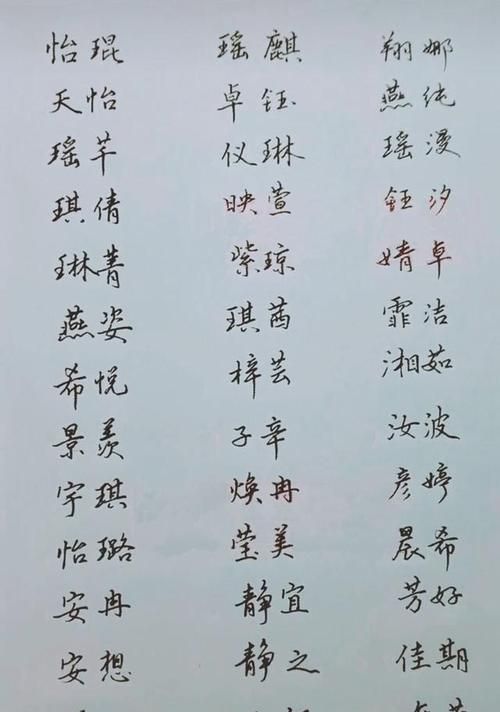 怡琨 瑶麒 翔娜
天怡 卓钰 燕纯
瑶芊 仪琳 瑶漫
琪倩 映萱 钰汐
琳菁 紫琼 婧卓
燕姿 琪茜 霏洁
希悦 梓芸 湘茹
景羡 子辛 汝波
宇琪 焕冉 彦婷
怡璐 莹美 晨希
安冉 静宜 芳好
安想 静之 佳期